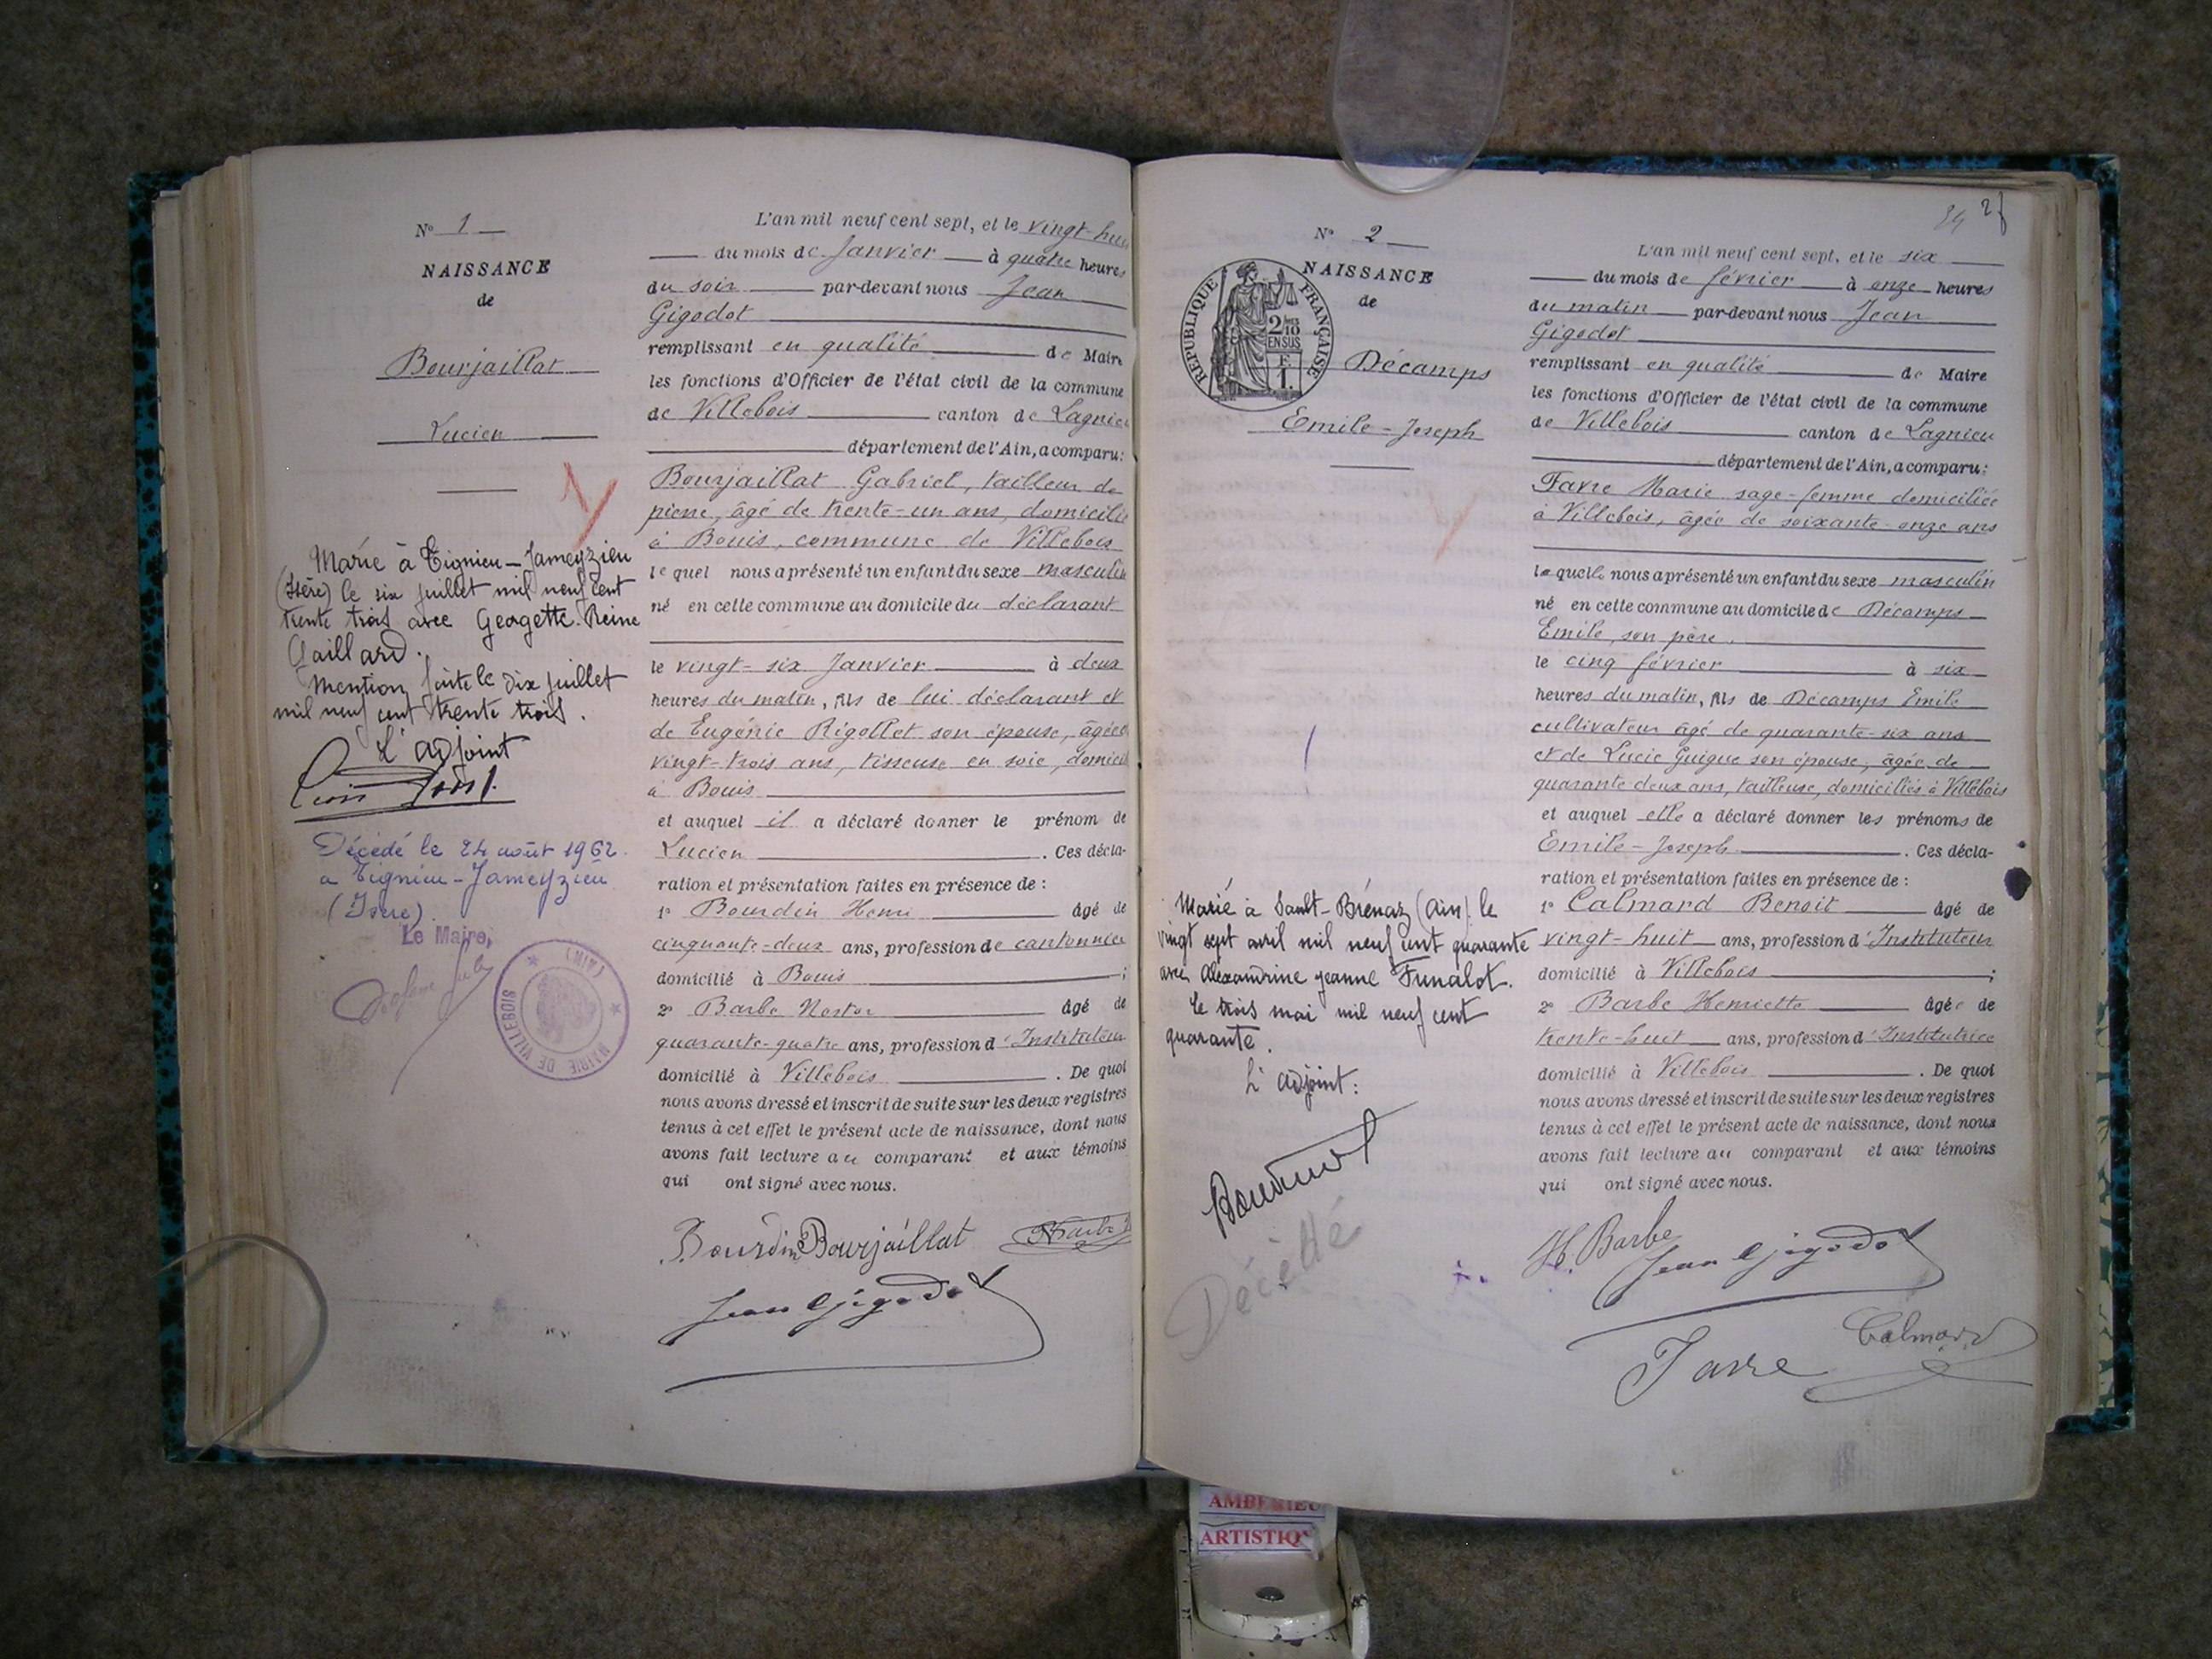 N° 1
NAISSANCE
de
Bourjaillat
Lucien
1
Marié à Tignieu-Jameyzieu
(Isère) le six juillet mil neuf cent
trente trois avec Georgette Reine
Gaillard.
Mention faite le dix juillet
mil neuf cent trente trois.
L'adjoint
Décédé le 24 août 1962
à Tignieu-Jameyzieu
(Isère).
Le Maire,
MAIRIE DE VILLEBOIS
(AIN)
L'an mil neuf cent sept, et le vingt-hui
du mois de Janvier à quatre heures
du soir par-devant nous Jean
Gigodot
remplissant en qualité de Maire
les fonctions d'Officier de l'état civil de la commune
de Villebois canton de Lagnieu
département de l'Ain, a comparu:
Bourjaillat Gabriel, tailleur de
pierre, âgé de trente-un ans, domicilié
à Bouis, commune de Villebois
lequel nous a présenté un enfant du sexe masculin
né en cette commune au domicile du déclarant
le vingt-six Janvier à deux
heures du matin, fils de lui déclarant et
de Eugénie Rigollet son épouse, âgée
vingt-trois ans, tisseuse en soie, domicil
à Bouis
et auquel il a déclaré donner le prénom de
Lucien. Ces décla-
ration et présentation faites en présence de :
1° Bourdin Henri âgé de
cinquante-deux ans, profession de cantonnier
domicilié à Bouis ;
2° Barbe Nestor âgé de
quarante-quatre ans, profession d'Instituteur
domicilié à Villebois. De quoi
nous avons dressé et inscrit de suite sur les deux registres
tenus à cet effet le présent acte de naissance, dont nous
avons fait lecture au comparant et aux témoins
qui ont signé avec nous.
Bourdin Bourjaillat NBarbe
Jean Gigodot
N° 2
NAISSANCE
de
RÉPUBLIQUE FRANÇAISE
2 MES
10
EN SUS
F.
1.
Décamps
Emile-Joseph
Marié à Sault-Brénaz (Ain) le
vingt sept avril mil neuf cent quarante
avec Alexandrine Jeanne Funalot.
Le trois mai mil neuf cent
quarante.
L'adjoint:
Décédé
L'an mil neuf cent sept, et le six
du mois de février à onze heures
du matin par-devant nous Jean
Gigodot
remplissant en qualité de Maire
les fonctions d'Officier de l'état civil de la commune
de Villebois canton de Lagnieu
département de l'Ain, a comparu:
Favre Marie sage-femme domiciliée
à Villebois, âgée de soixante-onze ans
laquelle nous a présenté un enfant du sexe masculin
né en cette commune au domicile de Décamps
Emile, son père.
le cinq février à six
heures du matin, fils de Décamps Emile
cultivateur âgé de quarante-six ans
et de Lucie Guigue son épouse, âgée de
quarante deux ans, tailleuse, domiciliés à Villebois
et auquel elle a déclaré donner les prénoms de
Emile-Joseph. Ces décla-
ration et présentation faites en présence de :
1° Calmard Benoit âgé de
vingt-huit ans, profession d'Instituteur
domicilié à Villebois ;
2° Barbe Henriette âgée de
trente-huit ans, profession d'Institutrice
domicilié à Villebois. De quoi
nous avons dressé et inscrit de suite sur les deux registres
tenus à cet effet le présent acte de naissance, dont nous
avons fait lecture au comparant et aux témoins
qui ont signé avec nous.
H. Barbe
Jean Gigodot
Calmard
Favre
AMBERIEU
ARTISTIQ